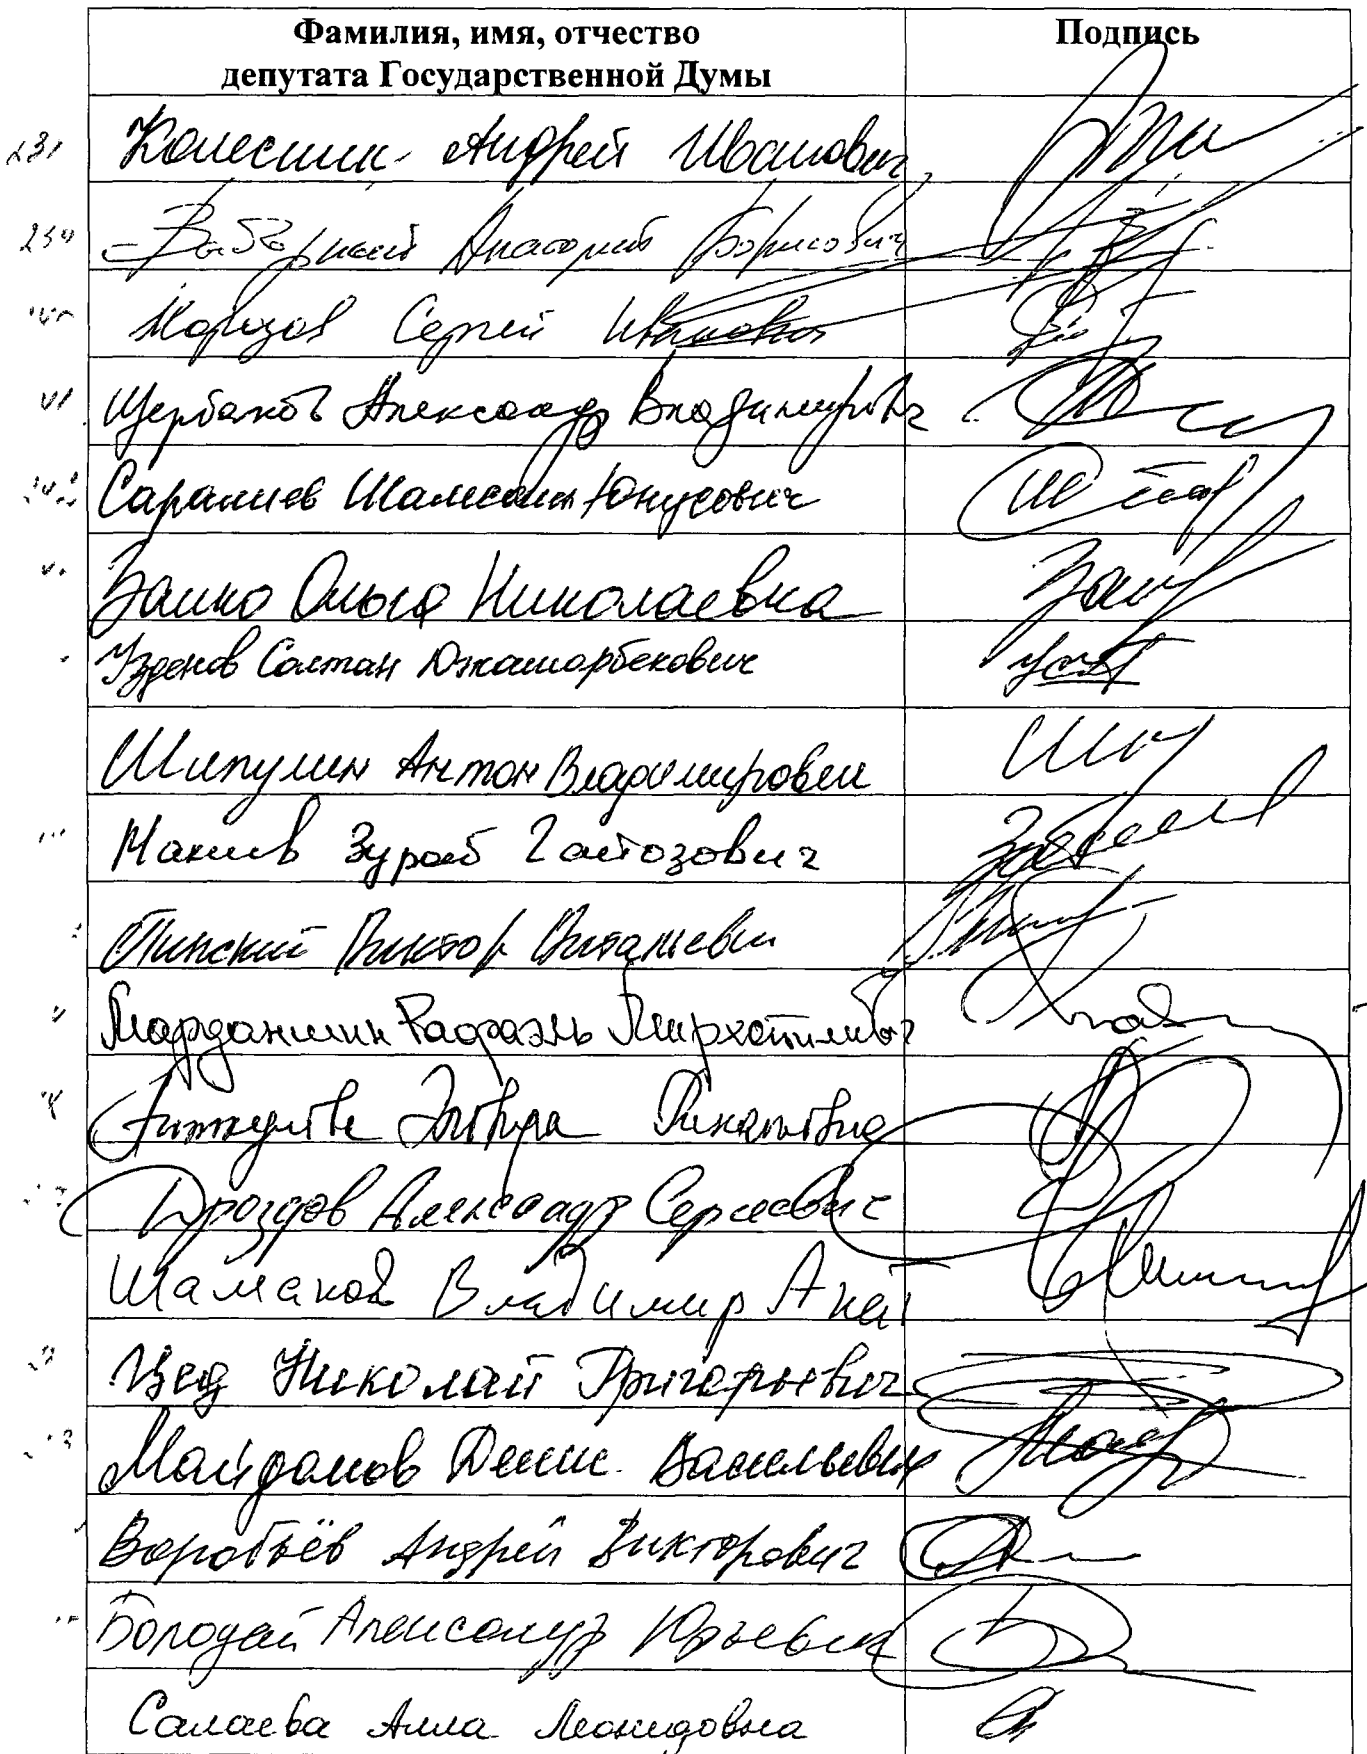 Фамилия, имя, отчество Подпись
депутата Государственной Думы
Колесник Андрей Иванович
Выборный Анатолий Борисович
Морозов Сергей Иванович
Щербаков Александр Владимирович
Саралиев Шамсаил Юнусович
Занко Ольга Николаевна
Узденов Солтан Джашарбекович
Шипулин Антон Владимирович
Макиев Зураб Гайозович
Пинский Виктор Витальевич
Марданшин Рафаэль Мирхатимович
Аиткулова Эльвира Ринатовна
Дроздов Александр Сергеевич
Шаманов Владимир Анат
Цед Николай Григорьевич
Майданов Денис Васильевич
Воробьёв Андрей Викторович
Бородай Александр Юрьевич
Салаева Алла Леонидовна